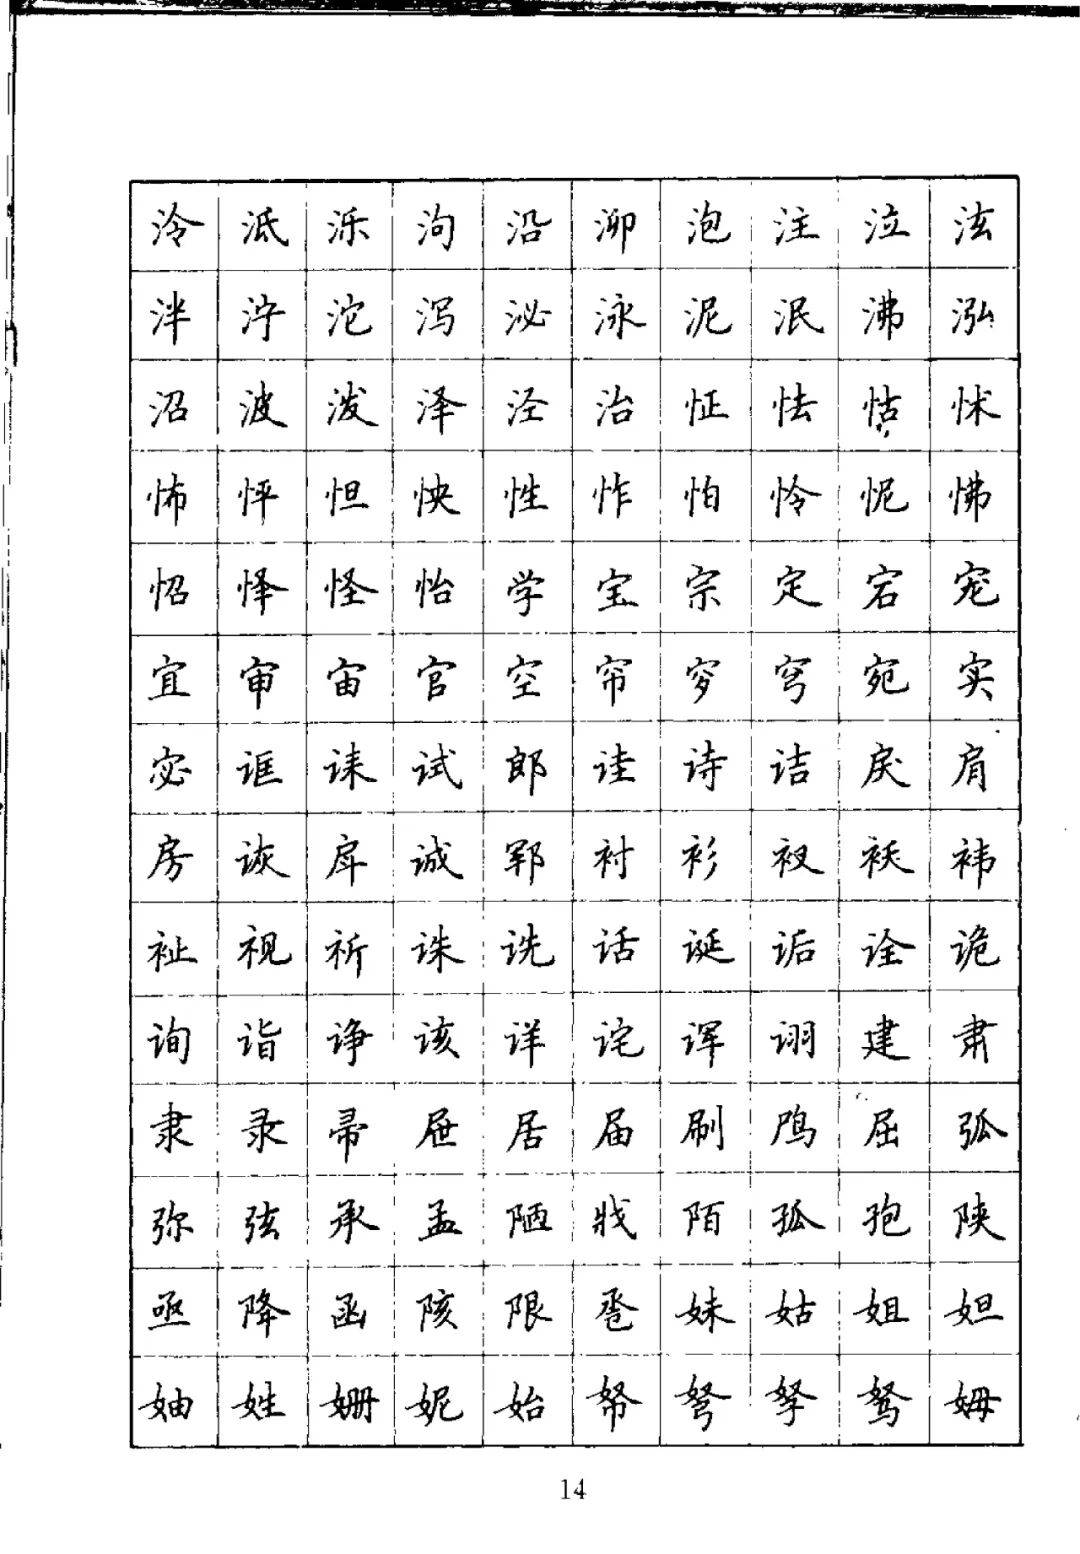 泠 泜 泺 泃 沿 泖 泡 注 泣 泫
泮 泞 沱 泻 泌 泳 泥 泯 沸 泓
沼 波 泼 泽 泾 治 怔 怯 怙 怵
怖 怦 怛 怏 性 怍 怕 怜 怩 怫
怊 怿 怪 怡 学 宝 宗 定 宕 宠
宜 审 宙 官 空 帘 穸 穹 宛 实
宓 诓 诔 试 郎 诖 诗 诘 戾 肩
房 诙 戽 诚 郓 衬 衫 衩 袄 袆
祉 视 祈 诛 诜 话 诞 诟 诠 诡
询 诣 诤 该 详 诧 诨 诩 建 肃
隶 录 帚 屉 居 届 刷 鸤 屈 弧
弥 弦 承 孟 陋 戕 陌 孤 孢 陕
亟 降 函 陔 限 卺 妹 姑 姐 妲
妯 姓 姗 妮 始 帑 弩 孥 驽 姆
14